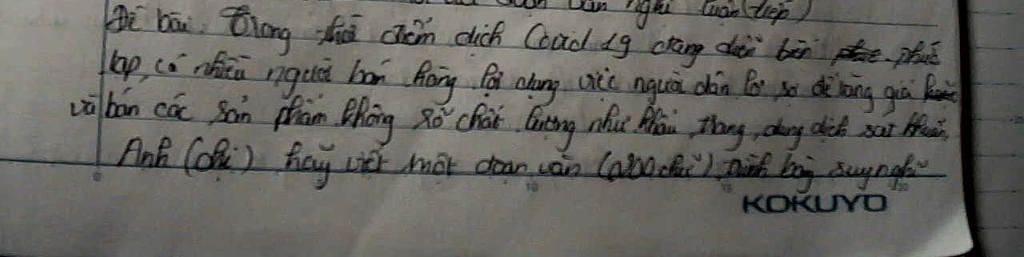 đoạn văn nghị luận (tiếp)
Đề bài: Trong thời điểm dịch Covid 19 đang diễn biến phức
tạp, có nhiều người bán hàng lợi dụng việc người dân lo sợ để tăng giá
và bán các sản phẩm không rõ chất lượng như khẩu trang, dung dịch sát khuẩn.
Anh (chị) hãy viết một đoạn văn (200 chữ) trình bày suy nghĩ
KOKUYO